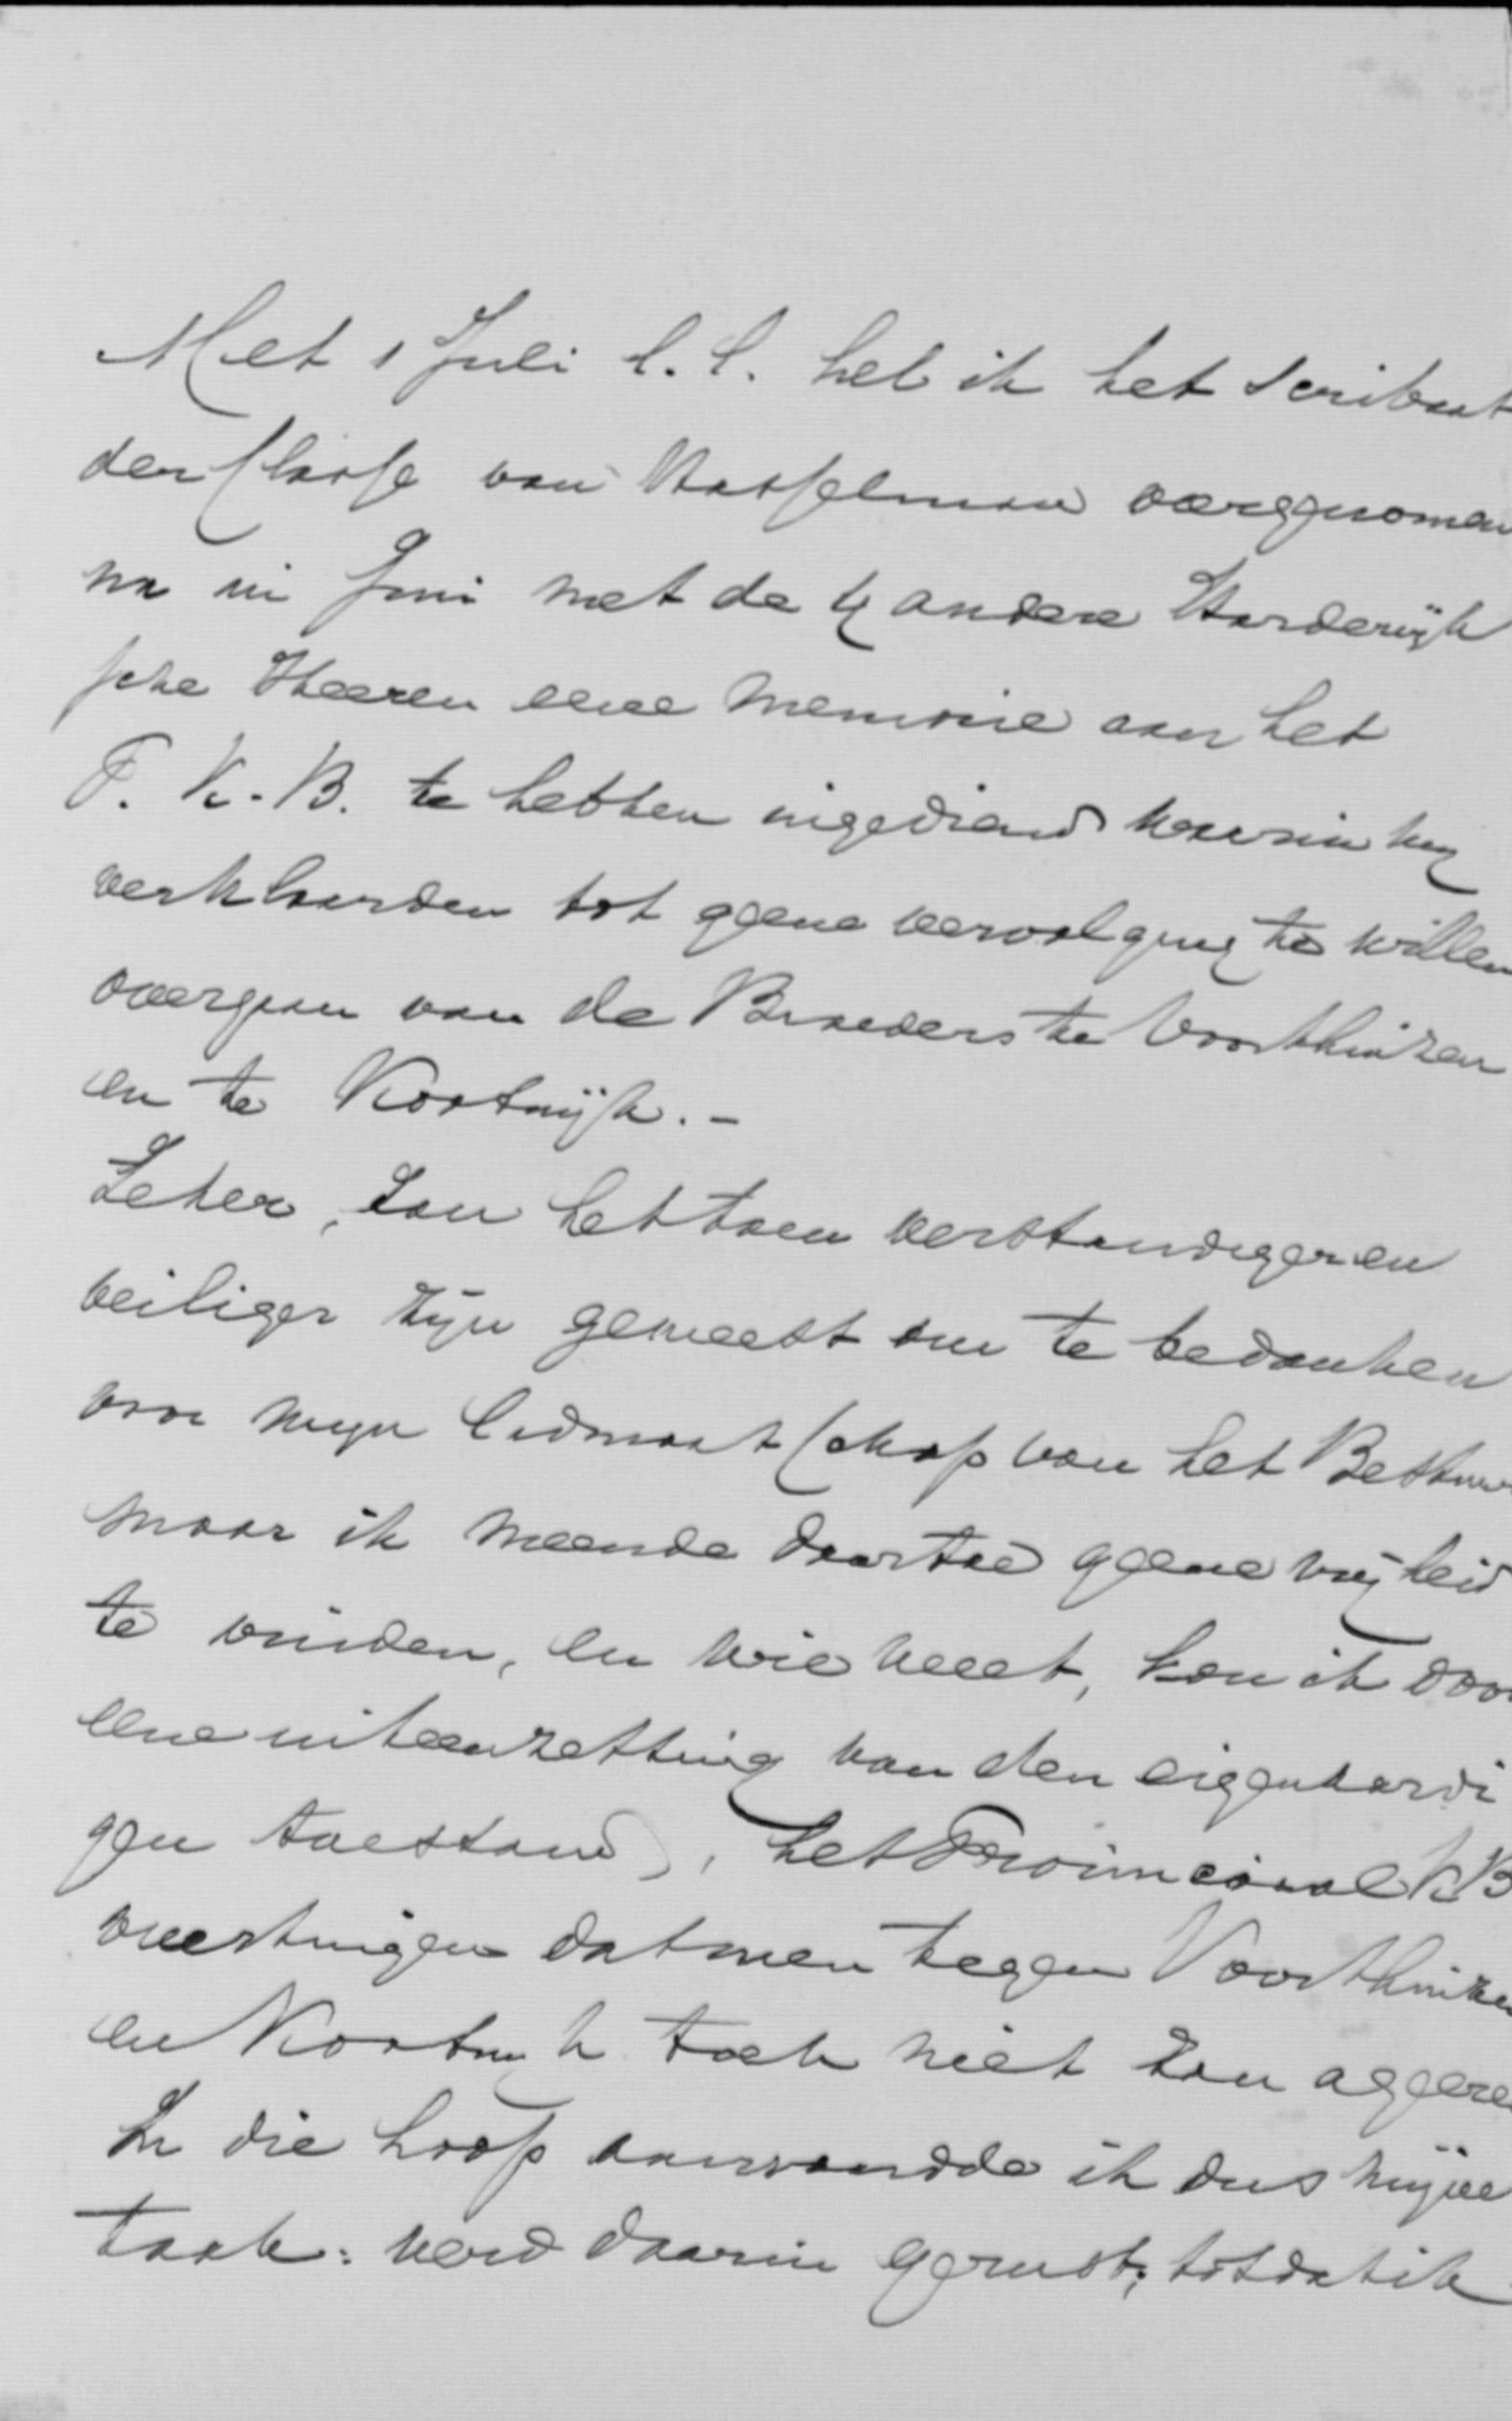 Met 1 Juli l.l. heb ik het scribaat
der Classe van Hasselman overgenomen
na in Juni met de 4 andere Harderwijk
sche Heeren eene memorie aan het
P. K. B. te hebben ingediend waarin wij
verklaarden tot geene vervolging te willen
overgaan van de Broeders te Voorthuizen
en te Kootwijk. -
Zeker, zou het toen verstandiger en
veiliger zijn geweest om te bedanken
voor mijn lidmaatschap van het Bestuur
maar ik meende daartoe geene vrijheid
te vinden, en wie weet, kon ik door
eene uiteenzetting van den eigenaardi
gen toestand, het Provinciaal K B
overtuigen dat men tegen Voorthuizen
en Kootwijk toch niet zou ageren
In die hoop aanvaardde ik dus mijne
taak: werd daarin gerust; totdat ik